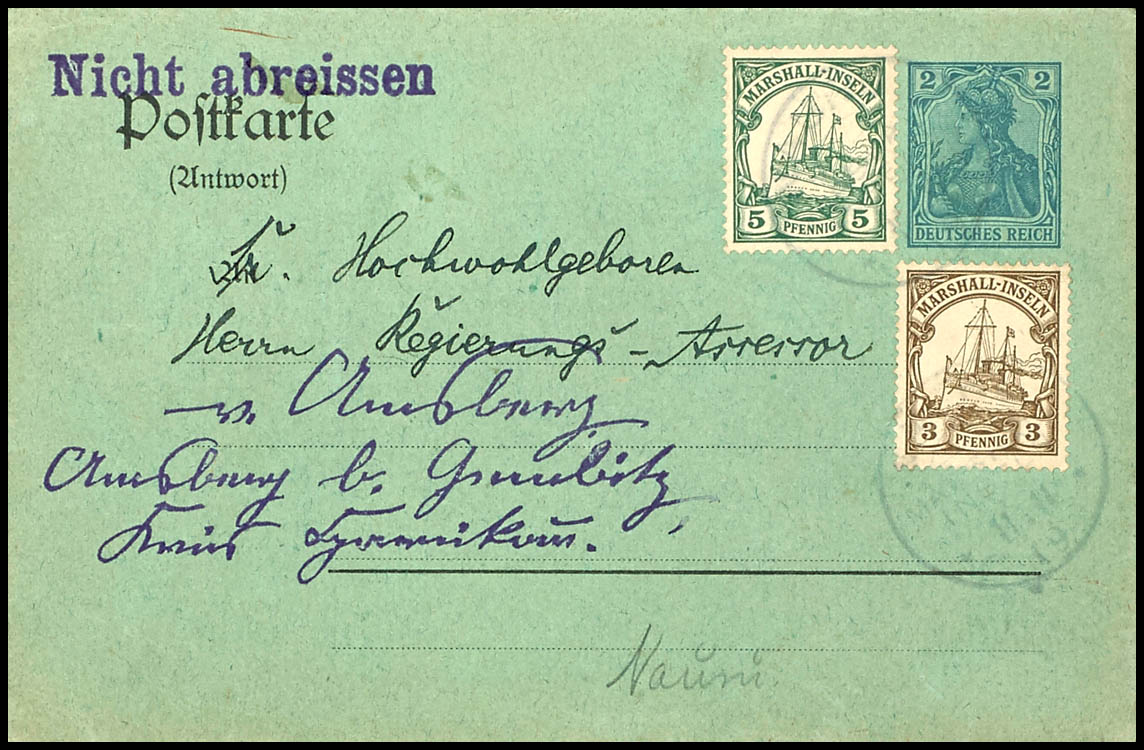 Nicht abreissen
Postkarte
(Antwort)
MARSHALL-INSELN
5 PFENNIG 5
2 2
DEUTSCHES REICH
MARSHALL-INSELN
3 PFENNIG 3
Sr. Hochwohlgeboren
Herrn Regierungs-Assessor
v. Amsberg
Amsberg b. Grünbitz
Kreis Czarnikau.
Nauru